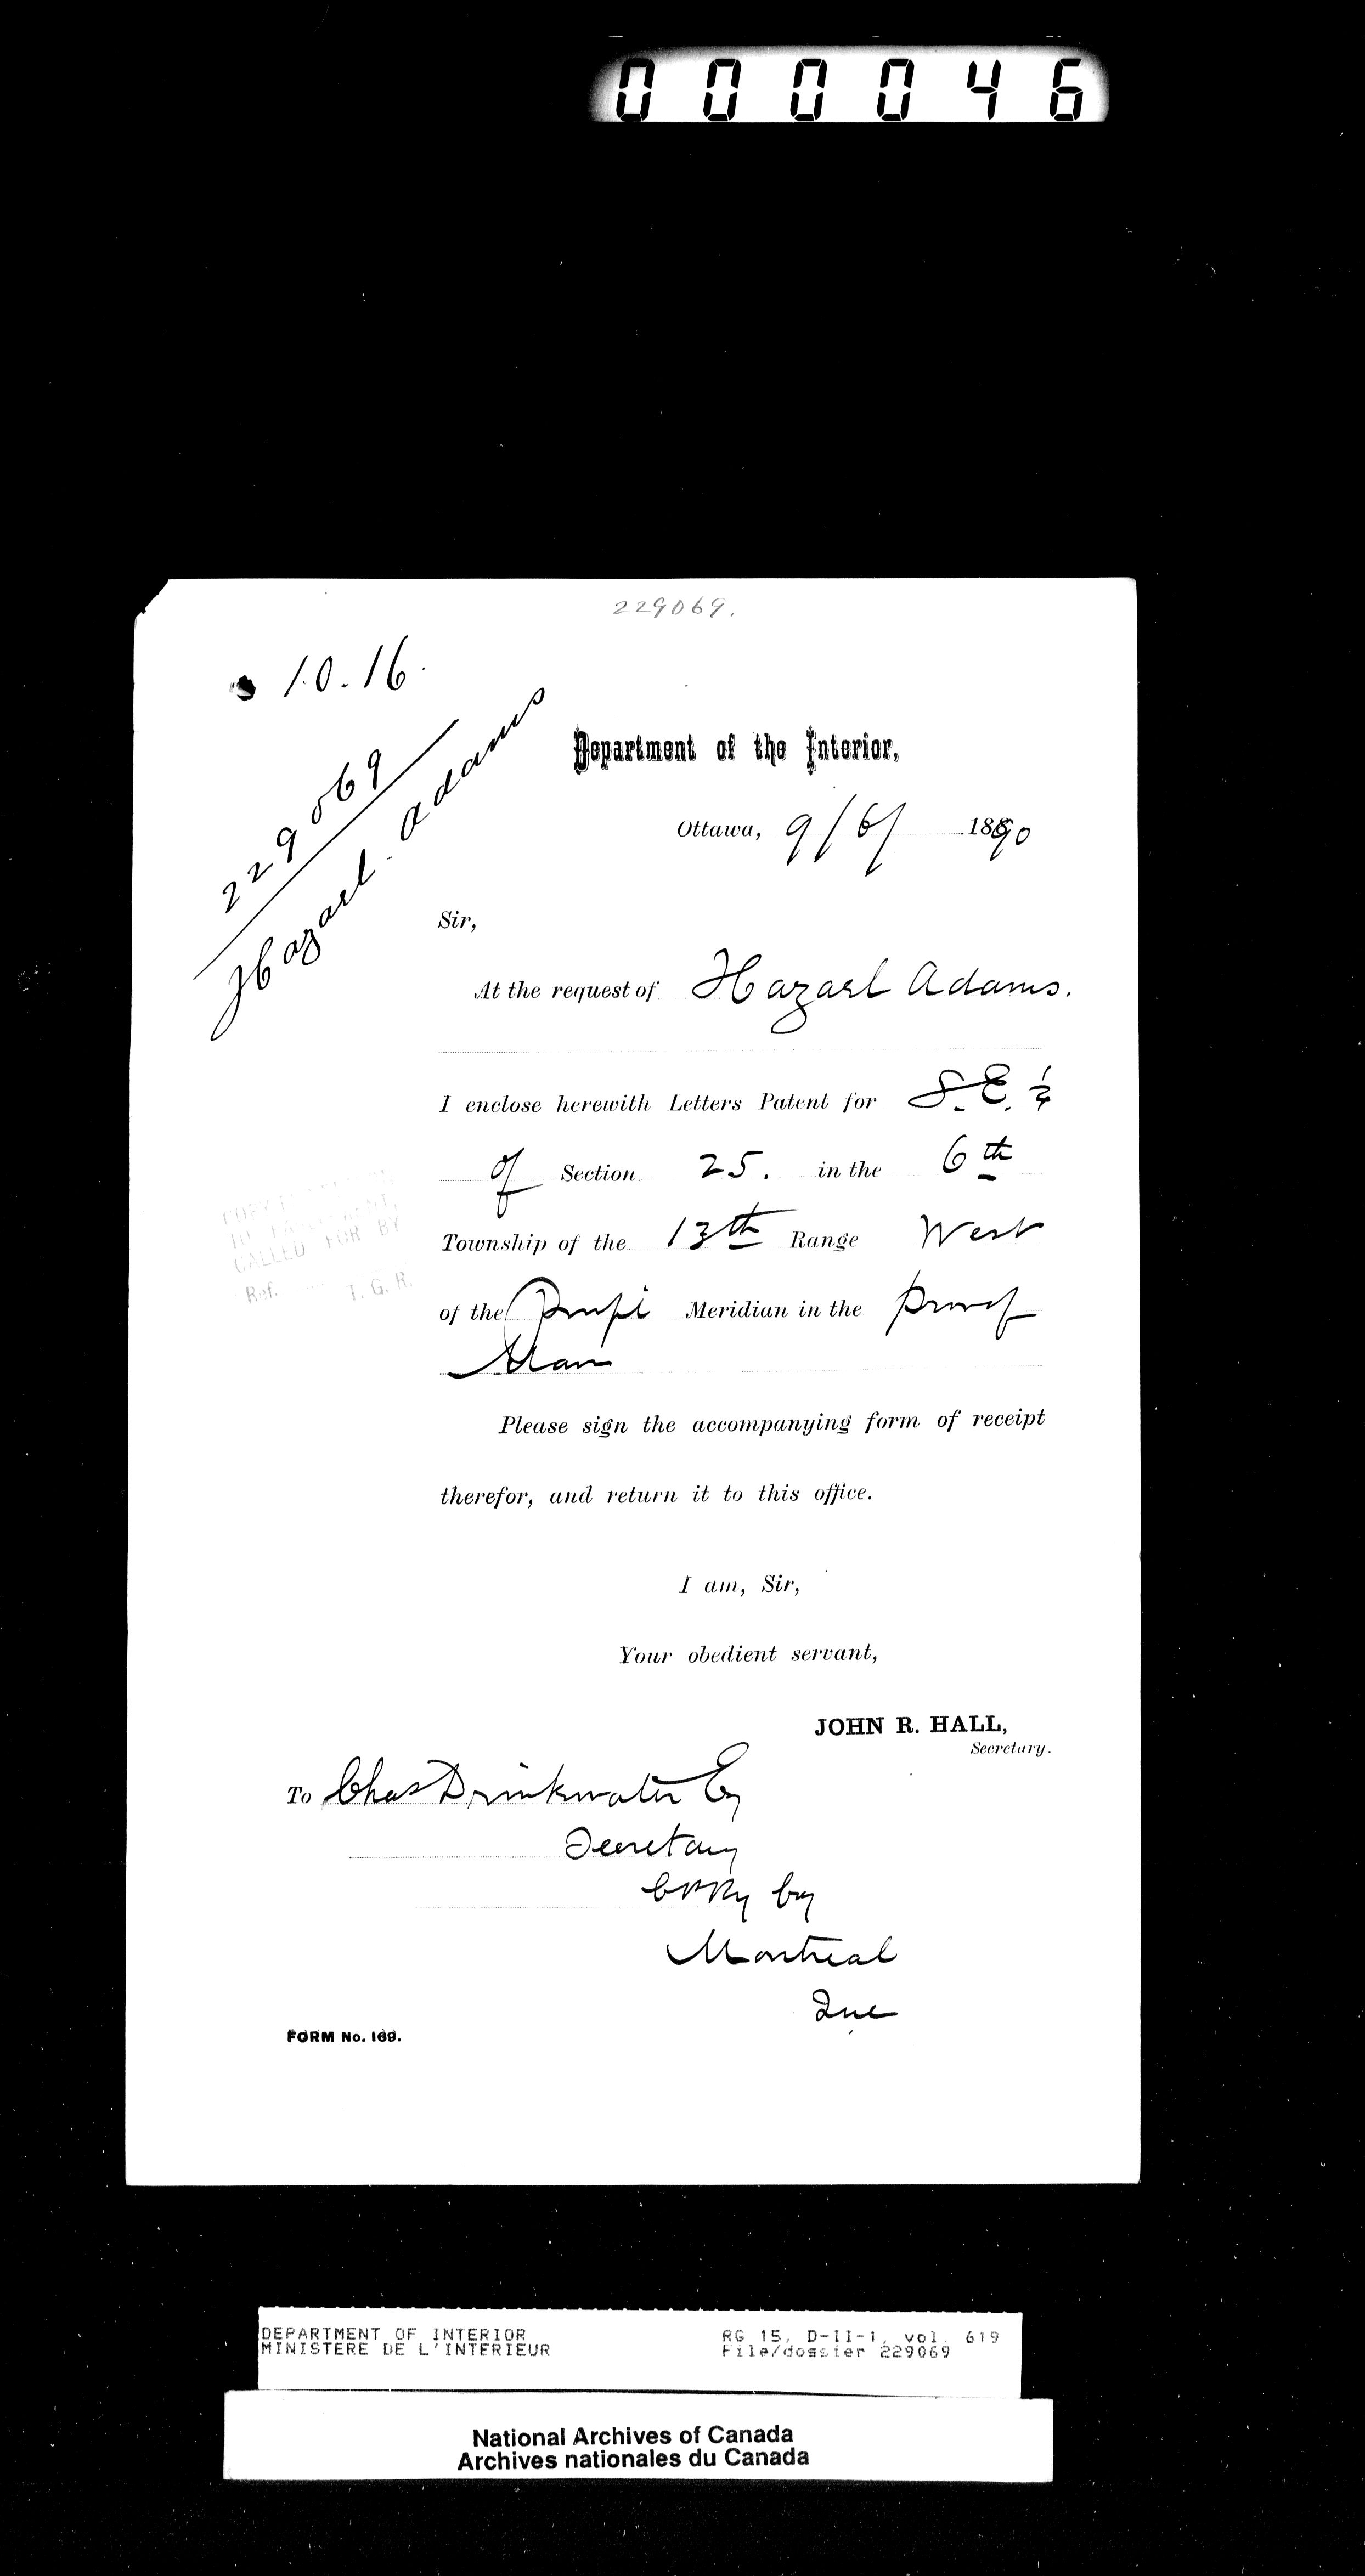 000046
229069.
10.16
229069
Hazael Adams
Department of the Interior,
Ottawa, 9/6/ 1890
Sir,
At the request of Hazael Adams.
I enclose herewith Letters Patent for S.E. ¼
of Section 25. in the 6th
Township of the 13th Range West
of the Prinpl Meridian in the Prov of
Man
Please sign the accompanying form of receipt
therefor, and return it to this office.
I am, Sir,
Your obedient servant,
JOHN R. HALL,
Secretary.
To Chas Drinkwater Esq
Secretary
CPRy Coy
Montreal
Que
FORM No. 169.
CALLED FOR BY
Ref. T. G. R.
DEPARTMENT OF INTERIOR
MINISTERE DE L'INTERIEUR
RG 15, D-II-1, vol. 619
File/dossier 229069
National Archives of Canada
Archives nationales du Canada